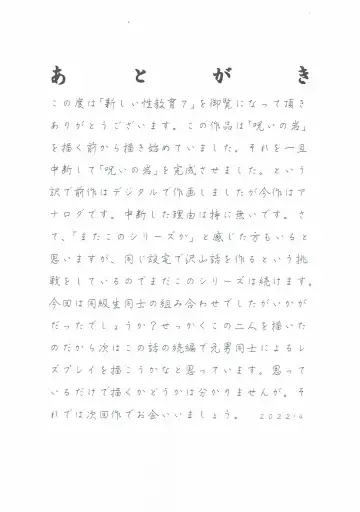 あとがき
この度は「新しい性教育7」を御覧になって頂き
ありがとうございます。この作品は「呪いの岩」
を描く前から描き始めていました。それを一旦
中断して「呪いの岩」を完成させました。という
訳で前作はデジタルで作画しましたが今作はア
ナログです。中断した理由は特に無いです。さ
て、「またこのシリーズか」と感じた方もいると
思いますが、同じ設定で沢山話を作るという挑
戦をしているのでまだこのシリーズは続けます。
今回は同級生同士の組み合わせでしたがいかが
だったでしょうか？せっかくこの二人を描いた
のだから次はこの話の続編で元男同士によるレ
ズプレイを描こうかなと思っています。思って
いるだけで描くかどうかは分かりませんが。そ
れでは次回作でお会いいましょう。 2022.4